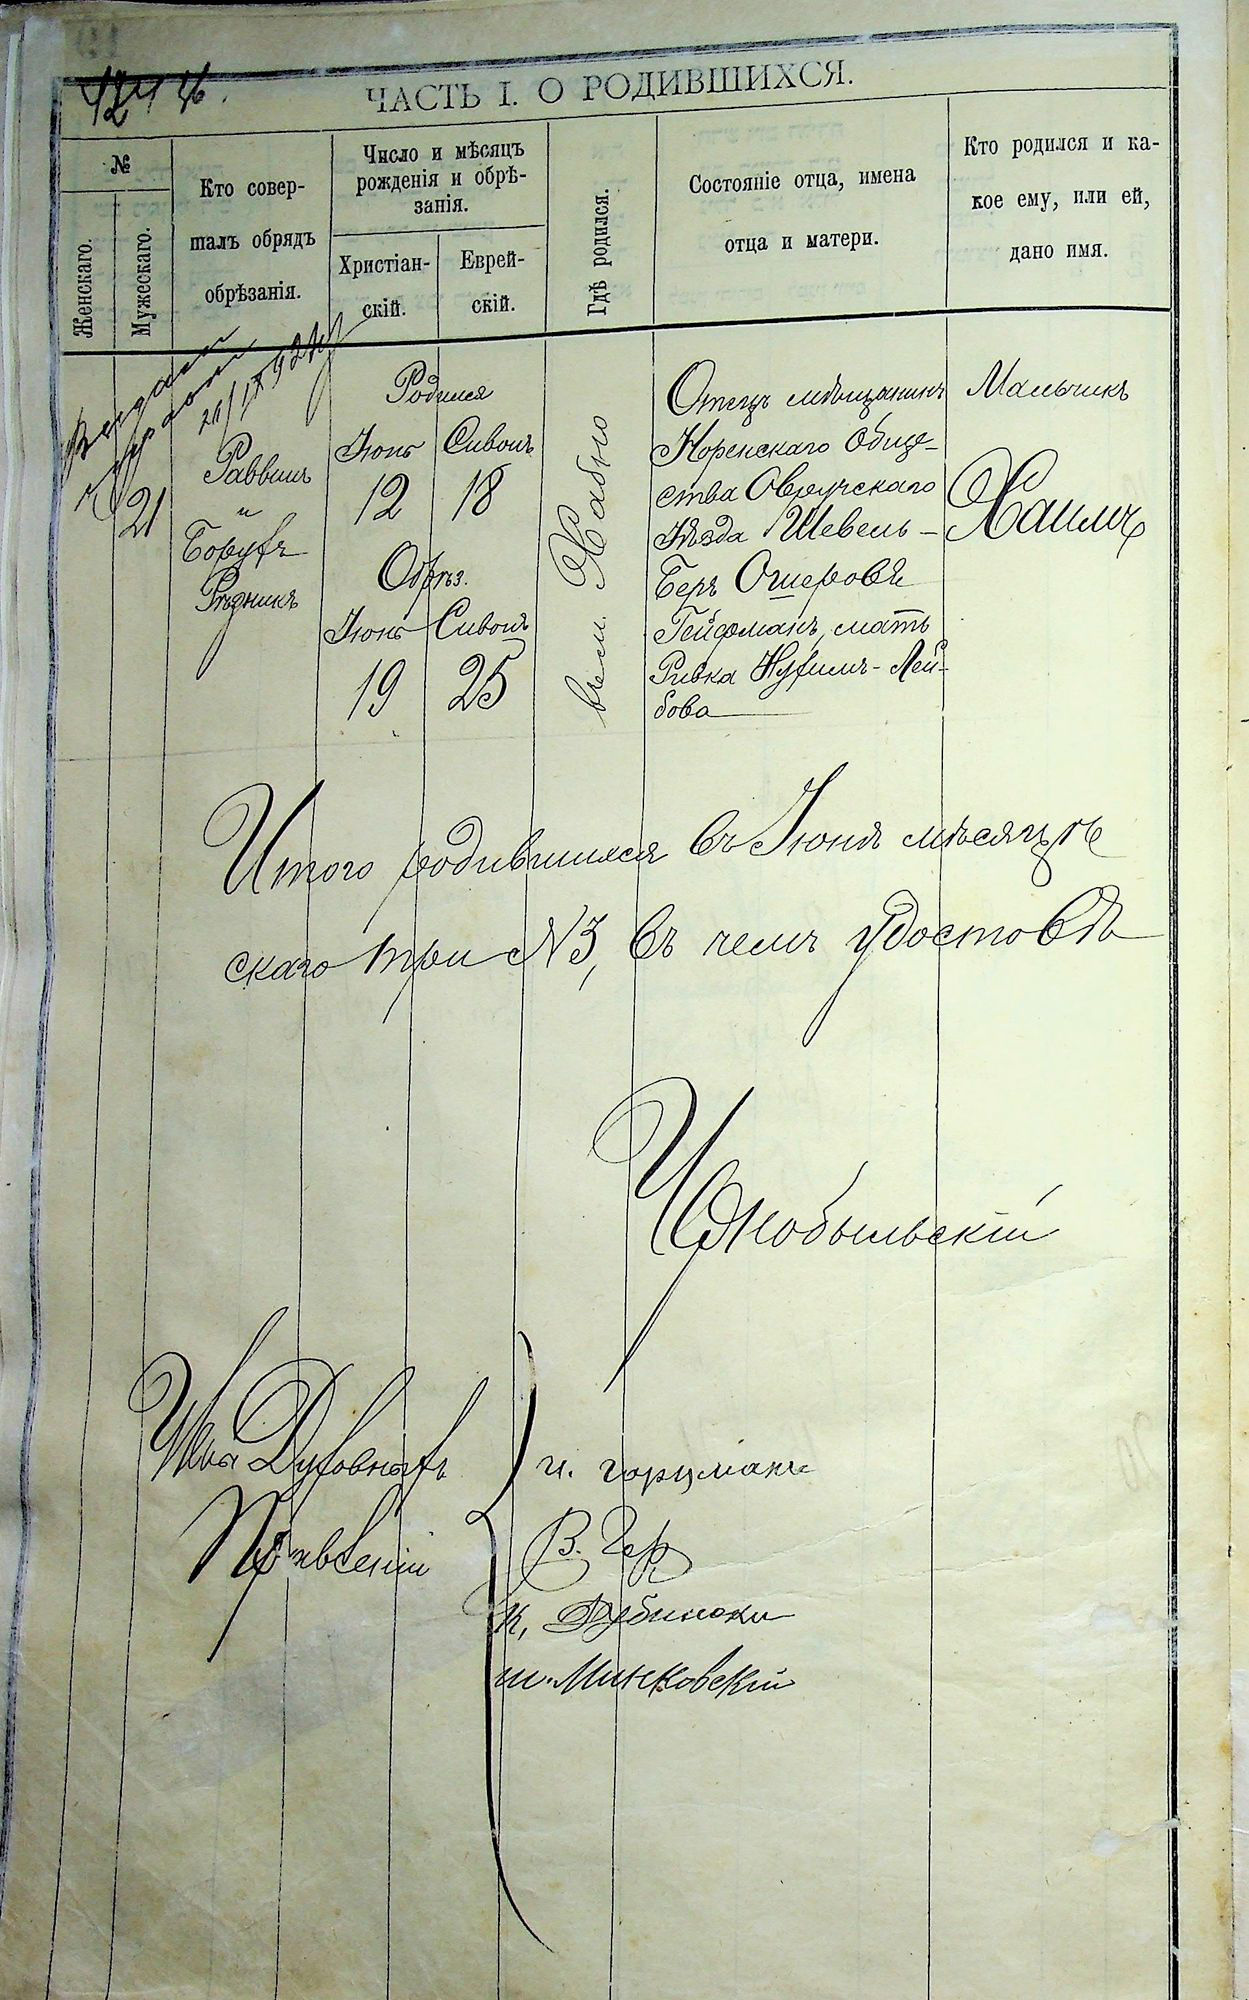 ЧАСТЬ I. О РОДИВШИХСЯ.
№
Женскаго.
Мужескаго.
Кто совер-
шалъ обрядъ
обрѣзанія.
Число и мѣсяцъ
рожденія и обрѣ-
занія.
Христіан-
скій.
Еврей-
скій.
Гдѣ родился.
Состояніе отца, имена
отца и матери.
Кто родился и ка-
кое ему, или ей,
дано имя.
21
Раввинъ
и
Борухъ
Рѣзникъ
Родился
Іюнь Сивонъ
12 18
Обрѣз.
Іюнь Сивонъ
19 25
въ м. Хабно
Отецъ мѣщанинъ
Норенскаго обще-
ства Овручскаго
Уѣзда Шевель-
Беръ Ошеровъ
Гейфманъ, мать
Ривка Нухимъ-Лей-
бова
Мальчикъ
Хаимъ
Итого родившихся въ Іюнѣ мѣсяцѣ
скаго три №3, въ чемъ удостовѣ
Духовныхъ
Правленій
В. Гер
К. Дубински
ш. Минковскій